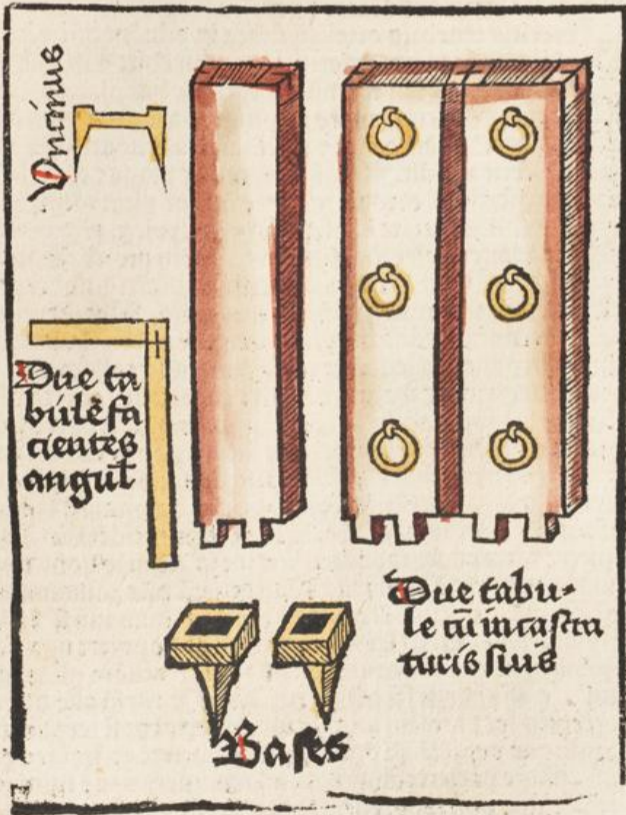 Vncinus
Due ta
bule fa
cientes
angul̄
Due tabu-
le cū incastra
turis suis
Bases